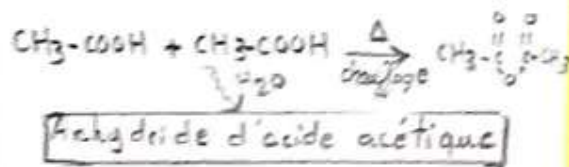 CH3-COOH + CH3-COOH Δ chauffage CH3-C O C-CH3
O O
H2O
Anhydride d'acide acétique